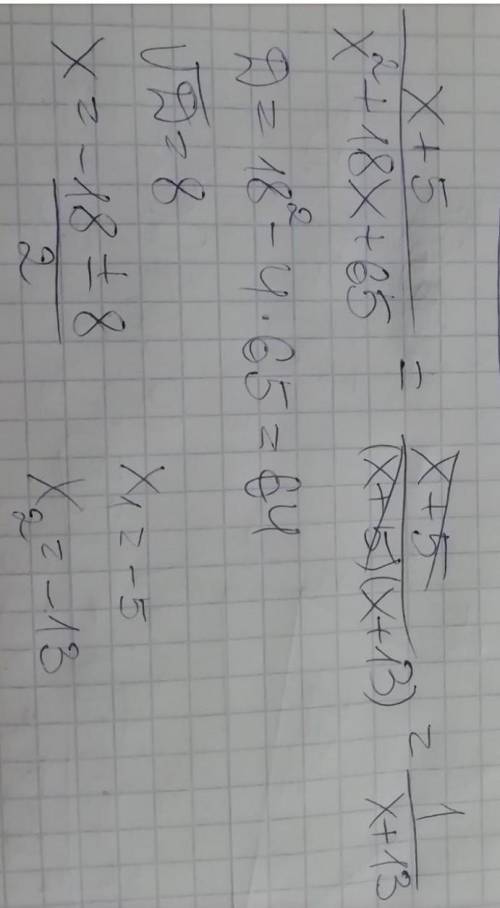 x+5 / x²+18x+65 = x+5 / (x+5)(x+13) = 1 / x+13
D = 18² - 4·65 = 64
√D = 8
x = -18 ± 8 / 2
x₁ = -5
x₂ = -13